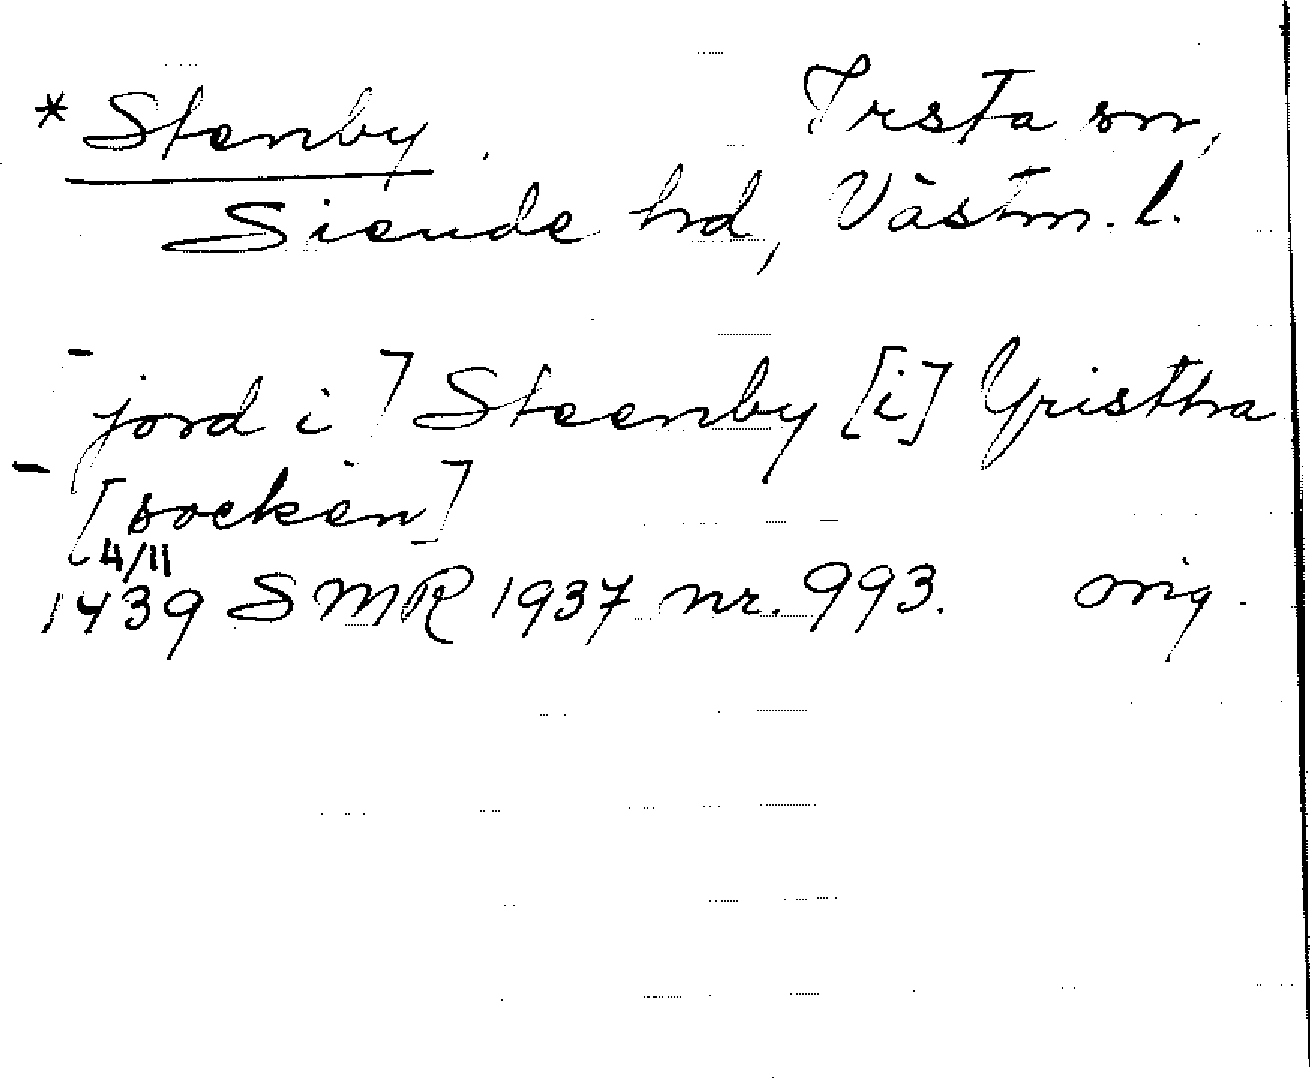 *Stenby. Irsta sn,
Siende hd, Västm. l.
- jord i] Steenby [i] Yristha
- [socken]
4/11
1439 SMR 1937 nr. 993. orig.